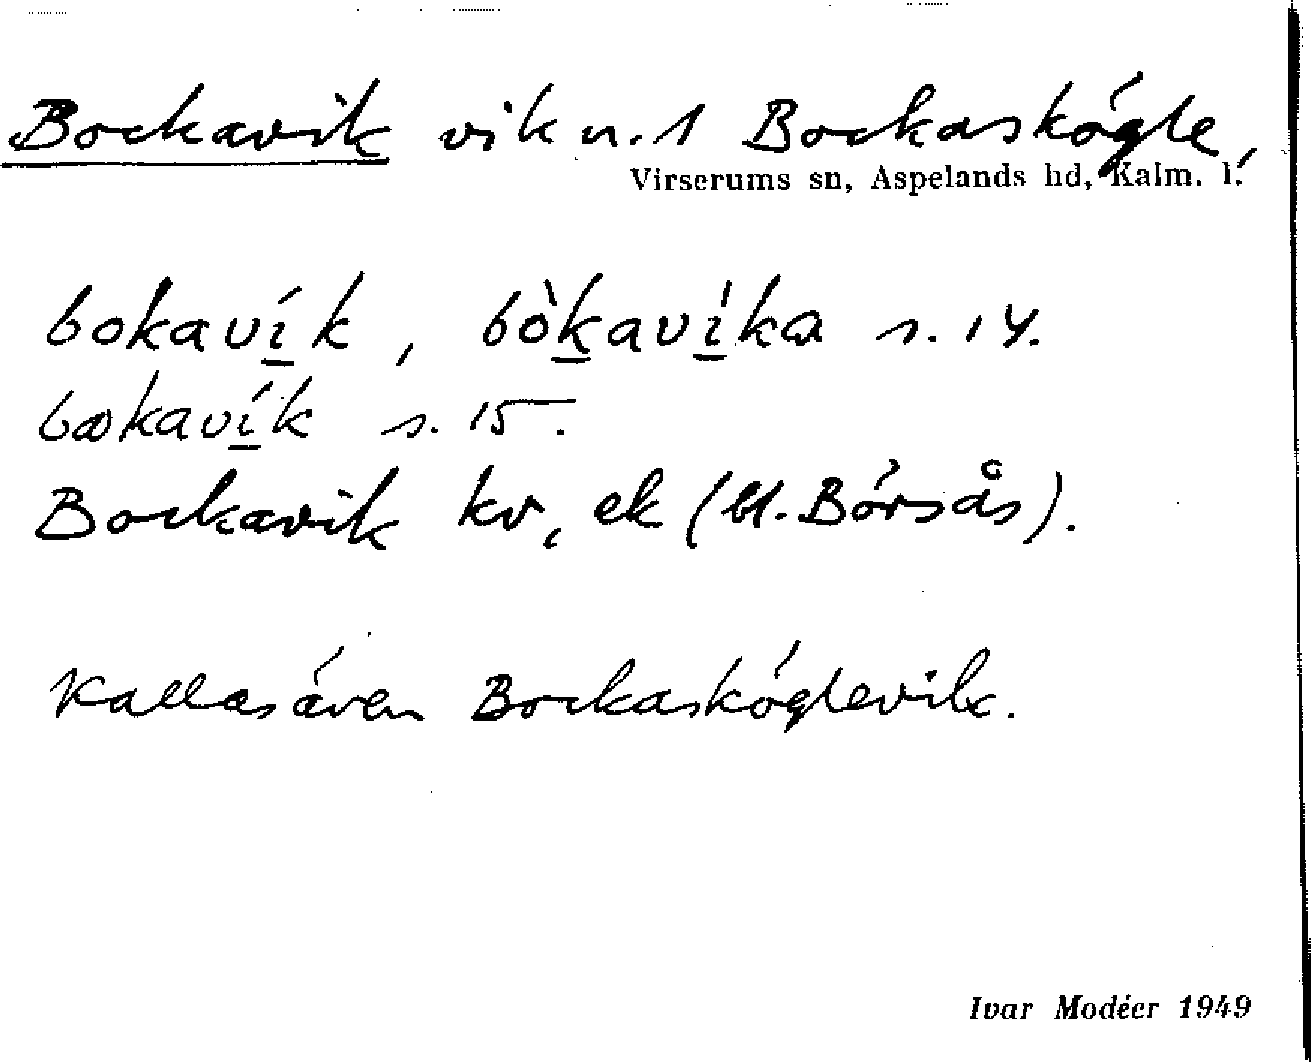 Bockavik vik n. 1 Bockaskógle,
Virserums sn, Aspelands hd, Kalm. l.
bokavík, bòkavíka s. 14.
bækavík s. 15.
Bockavik kv, ek (bl. Bórsås).
Kallas även Bockaskóglevik.
Ivar Modéer 1949